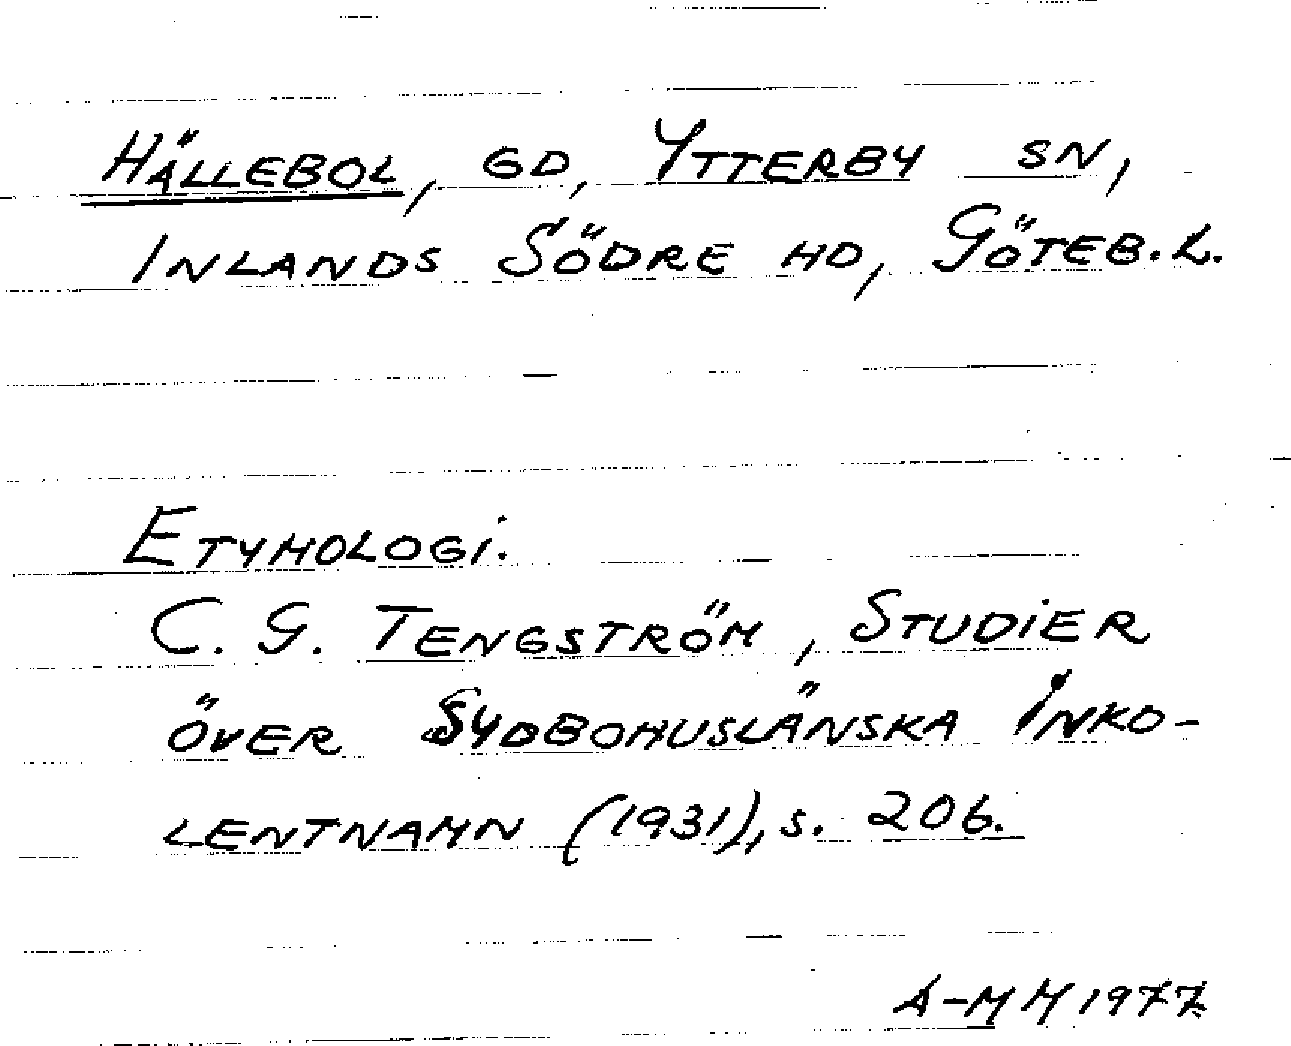 HÄLLEBOL, GD, YTTERBY SN,
INLANDS SÖDRE HD, GÖTEB. L.
ETYMOLOGI.
C. G. TENGSTRÖM, STUDIER
ÖVER SYDBOHUSLÄNSKA INKO-
LENTNAMN (1931), s. 206.
A-MM 1977